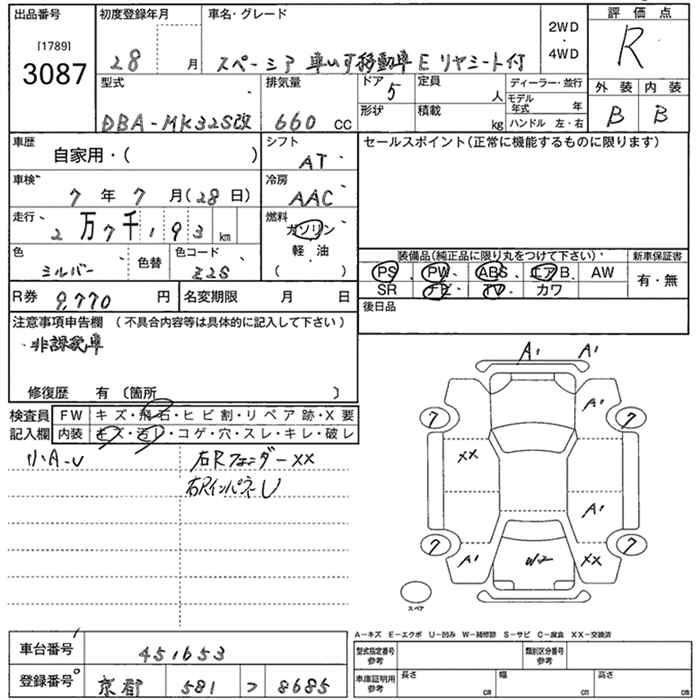 出品番号 初度登録年月 車名・グレード 2WD・4WD 評価点
[1789]
3087 28 月 スペーシア 車いす移動車 E リヤシート付 R
型式 排気量 ドア 5 定員 人 ディーラー・並行 外装 内装
DBA-MK32S改 660 cc 形状 積載 kg モデル年式 年 B B
ハンドル 左・右
車歴 自家用・( ) シフト AT セールスポイント(正常に機能するものに限ります)
車検 7年 7月(28日) 冷房 AAC
走行 2万7千193 km 燃料 ガソリン・軽油・( )
色 シルバー 色替 色コード Z2S
装備品(純正品に限り丸をつけて下さい) 新車保証書
PS PW ABS エアB AW 有・無
SR ナビ TV カワ
R券 9,770円 名変期限 月 日 後日品
注意事項申告欄 (不具合内容等は具体的に記入して下さい)
非課税車
修復歴 有 〔箇所 〕
検査員記入欄 FW キズ・飛石・ヒビ割・リペア跡・X要
内装 キズ・汚レ・コゲ・穴・スレ・キレ・破レ
小A-U 右Rフェンダー XX
右Rインパネ U
A' A'
7 A' 7
XX
A'
7 A' W2 XX 7
スペア
A-キズ E-エクボ U-凹み W-補修跡 S-サビ C-腐食 XX-交換済
車台番号 451653 型式指定番号 参考 類別区分番号 参考
登録番号 京都 581 つ 8685 車庫証明用 参考 長さ cm 幅 cm 高さ cm